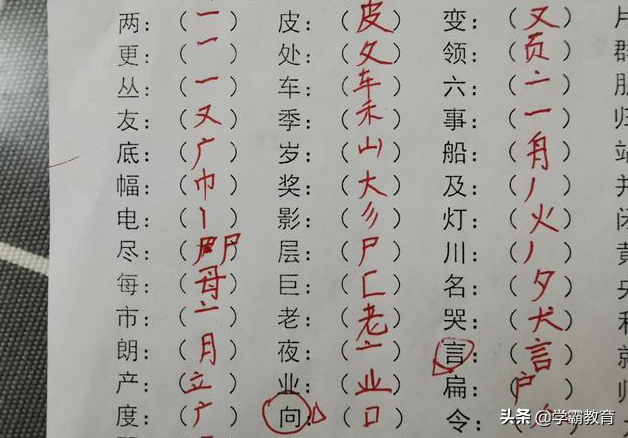 两：（一） 皮：（皮） 变：（又） 片
更：（一） 处：（夂） 领：（页） 群
丛：（一） 车：（车） 六：（亠）
友：（又） 季：（禾） 事：（一） 归
底：（广） 岁：（山） 船：（舟） 端
幅：（巾） 奖：（大） 及：（丿） 并
电：（丨） 影：（彡） 灯：（火） 闭
尽：（尸） 层：（尸） 川：（丿） 黄
每：（母） 巨：（匚） 名：（夕） 央
市：（亠） 老：（老） 哭：（犬） 和
朗：（月） 夜：（亠） 言：（言） 就
产：（立） 业：（业） 扁：（户） 师
度：（广） 向：（口） 令：（
头条 @学霸教育